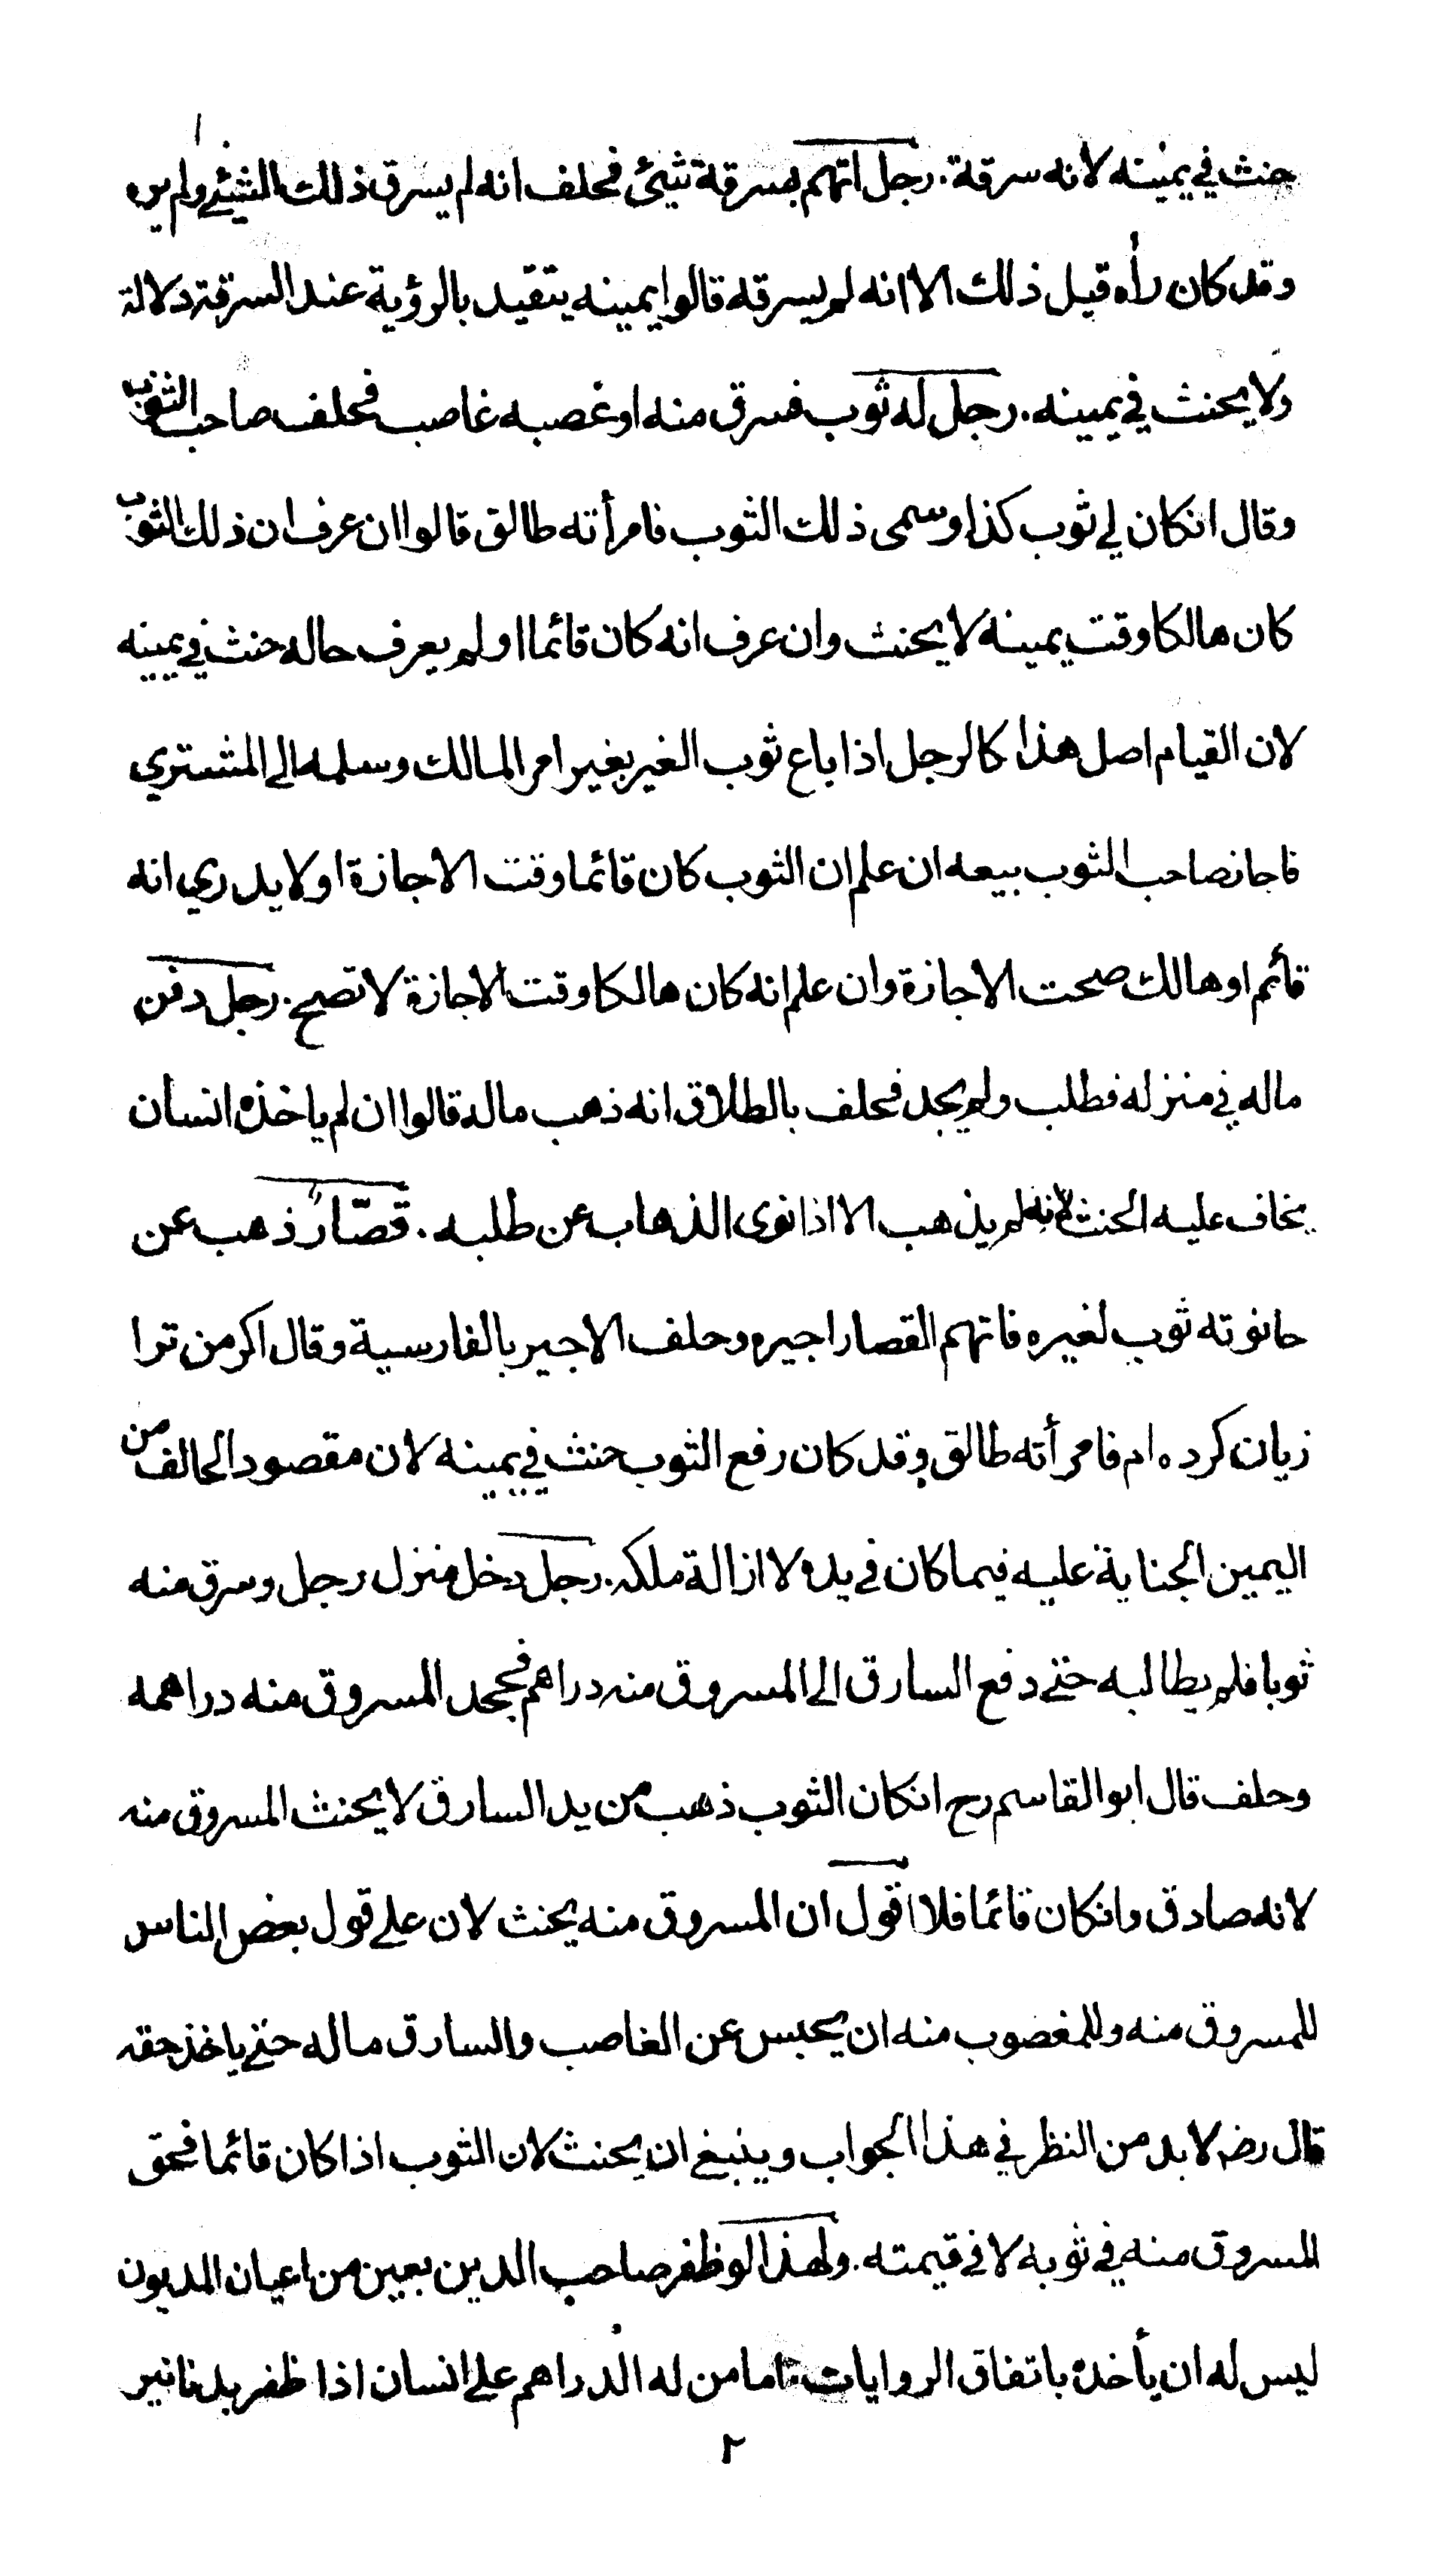 حنث في يمينه لانه سرقة. رجل اتهم بسرقة شيئ فحلف انه لم يسرق ذلك الشيئ ولم يره
وقد كان رأه قبل ذلك الا انه لم يسرقه قالوا يمينه يتقيد بالرؤية عند السرقة دلالة
ولا يحنث في يمينه. رجل له ثوب فسرق منه او غصبه غاصب فحلف صاحب الثوب
وقال انكان لي ثوب كذا وسمى ذلك الثوب فامرأته طالق قالوا ان عرف ان ذلك الثوب
كان هالكا وقت يمينه لا يحنث وان عرف انه كان قائما او لم يعرف حاله حنث في يمينه
لان القيام اصل هذا كالرجل اذا باع ثوب الغير بغير امر المالك وسلمه الى المشتري
فاجاز صاحب الثوب بيعه ان علم ان الثوب كان قائما وقت الاجازة او لا يدري انه
قائم او هالك صحت الاجازة وان علم انه كان هالكا وقت الاجازة لا تصح. رجل دفن
ماله في منزله فطلب ولم يجد فحلف بالطلاق انه ذهب ماله قالوا ان لم ياخذه انسان
يخاف عليه الحنث لانه لم يذهب الا اذا نوى الذهاب عن طلبه. قصّار ذهب عن
حانوته ثوب لغيره فاتهم القصار اجيره وحلف الاجير بالفارسية وقال اكر من ترا
زيان كرده ام فامرأته طالق وقد كان رفع الثوب حنث في يمينه لان مقصود الحالف من
اليمين الجناية عليه فيما كان في يده لا ازالة ملكه. رجل دخل منزل رجل وسرق منه
ثوبا فلم يطالبه حتى دفع السارق الى المسروق منه دراهم فجحد المسروق منه دراهمه
وحلف قال ابو القاسم رح انكان الثوب ذهب من يد السارق لا يحنث المسروق منه
لانه صادق وانكان قائما فلا اقول ان المسروق منه يحنث لان على قول بعض الناس
للمسروق منه وللمغصوب منه ان يحبس عن الغاصب والسارق ماله حتى ياخذ حقه
قال رضـ لا بد من النظر في هذا الجواب وينبغي ان يحنث لان الثوب اذا كان قائما فحق
المسروق منه في ثوبه لا في قيمته. ولهذا لو ظفر صاحب الدين بعين من اعيان المديون
ليس له ان يأخذه باتفاق الروايات اما من له الدراهم على انسان اذا ظفر بدنانير
٢